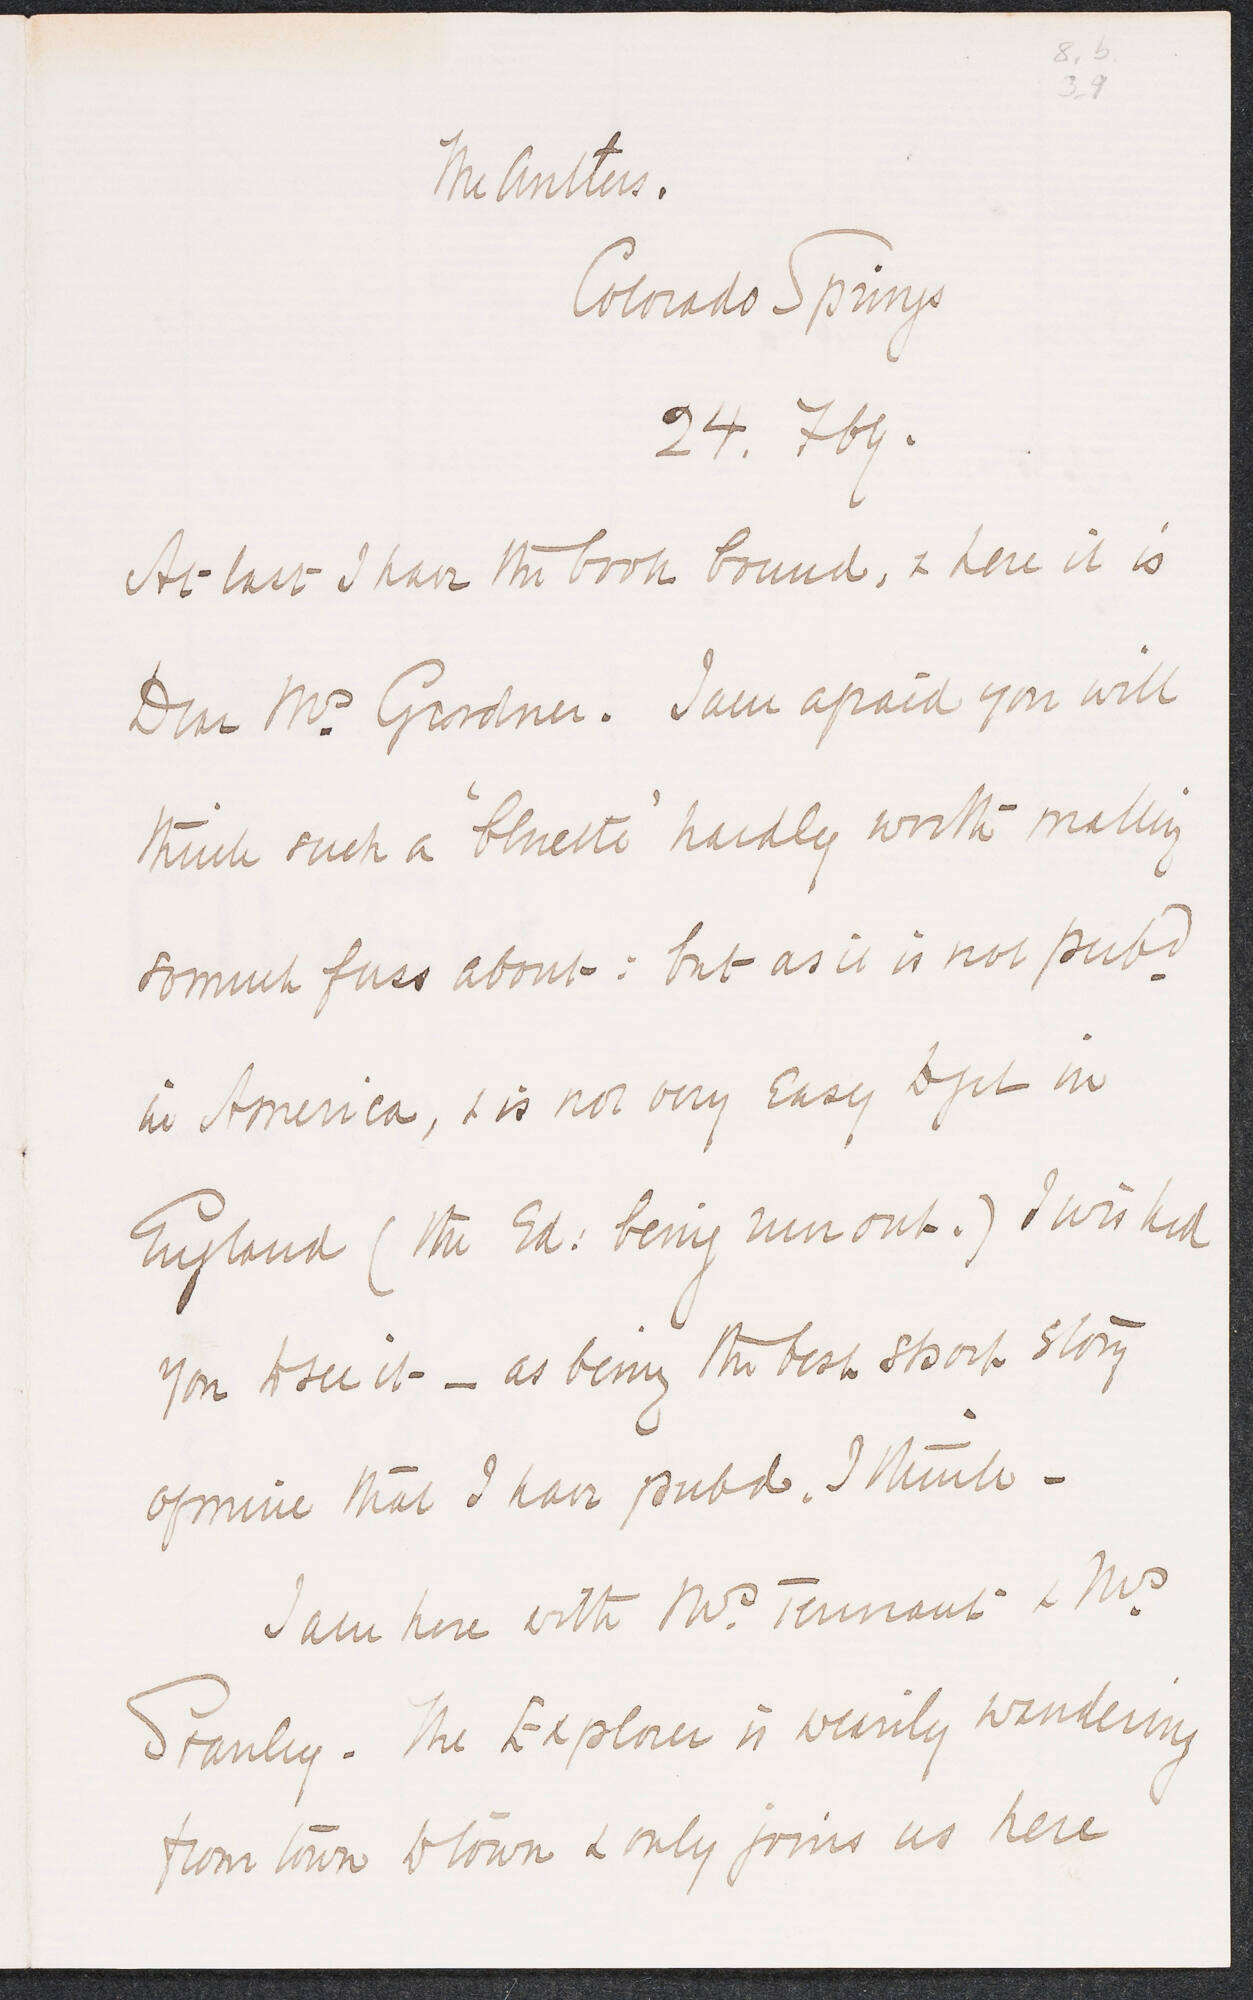 8. b.
3.9
The Antlers.
Colorado Springs
24. Feby.
At last I have the book bound, & here it is
Dear Mrs. Gardner. I am afraid you will
think such a 'bluette' hardly worth making
so much fuss about: but as it is not pubd.
in America, & is not very easy to get in
England (the Ed: being run out.) I wished
you to see it – as being the best short story
of mine that I have pubd. I think –
I am here with Mrs. Tennant & Mrs.
Stanley. The Explorer is wearily wandering
from town to town & only joins us here